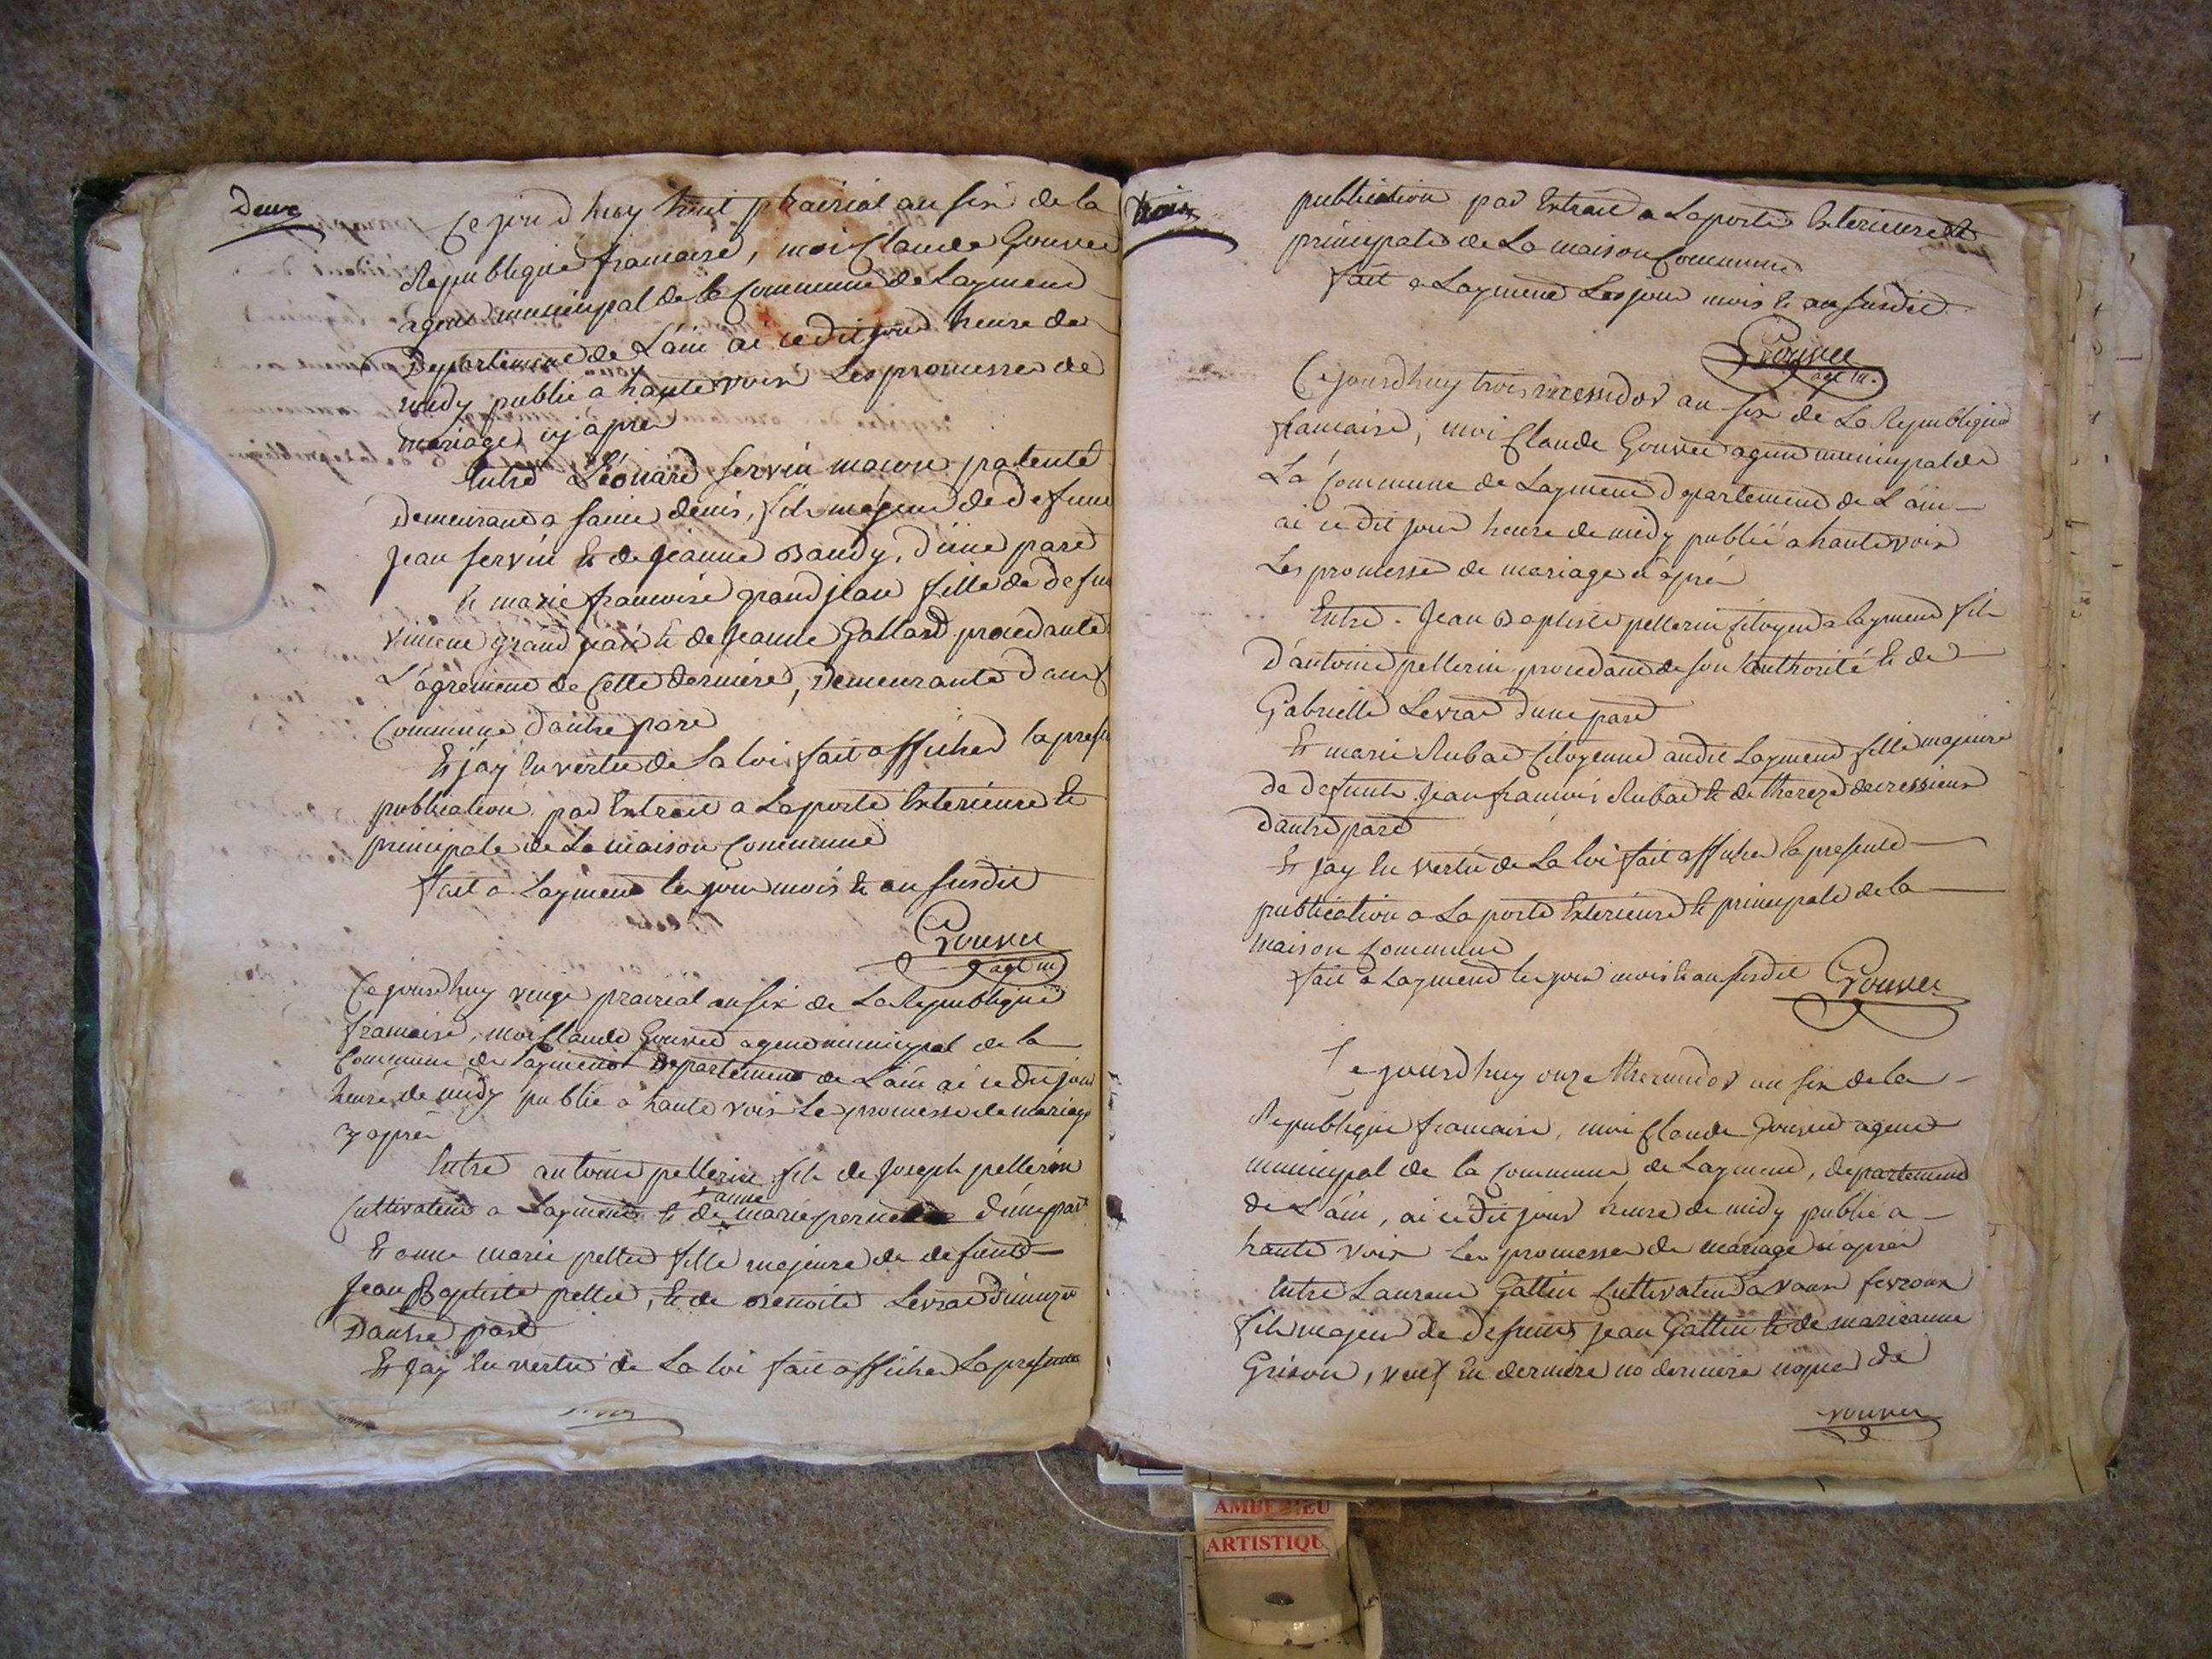 Deux
Ce jourd huy huit prairial an six de la
Republique francaise, moi Claude Gouvee
agent municipal de la Commune de Layment
Departement de L'ain ai ce dit jour heure de
midy publié a haute voix Les promesses de
mariage cy après
Entre Léonard Servin macon patenté
Demeurant a saint denis, fils majeur de defunt
Jean Servin et de Jeanne Bandy, d'une part
Et marie francoise grand jean fille de defunt
vincent grand jean et de Jeanne Gallard procedante
L'agrement de Cette derniere, Demeurante dans
Commune d'autre part
Et j'ay En vertu de La loi fait afficher la presente
publication par Extrait a La porte Exterieure et
principale de La maison Commune
fait a Layment les jour mois et an susdit
Gouvee
agt m
Ce jourdhuy vingt prairial an six de La Republique
francaise, moi Claude Gouvee agent municipal de la
Commune de Layment Departement de L'ain ai ce dit jour
heure de midy publié a haute voix Le promesse de mariage
cy après
Entre antoine pellerin fils de Joseph pellerin
anne
Cultivateur a Layment et de marie d'une part
Et anne marie pellet fille majeure de defunt
Jean Baptiste pellet, et de Benoite Levrat
D'autre part
Et J'ay En vertu de La loi fait afficher La presente
trois
publication par Extrait a La porte Exterieure et
principale de La maison Commune
fait a Layment Les jour mois et an susdit
Gouvee
agt m.
Ce jourdhuy trois messidor an six de La Republique
francaise, moi Claude Gouvee agent municipal de
La Commune de Layment departement de L'ain
ai ce dit jour heure de midy publié a haute voix
Les promesse de mariage ci après
Entre Jean Baptiste pellerin Citoyen a Layment fils
d'antoine pellerin procedant de son authorité et de
Gabrielle Levrat d'une part
Et marie Rubat Citoyenne audit Layment fille majeure
de defunts Jean francois Rubat et de thereze decressieux
d'autre part
Et J'ay En vertu de La loi fait afficher la presente
publication a La porte Exterieure et principale de la
maison Commune
fait a Layment les jour mois et an susdit Gouvee
Ce jourdhuy onze thermidor an six de la
Republique francaise, moi Claude Gouvee agent
municipal de la Commune de Layment, departement
de L'ain, ai ce dit jour heure de midy publié a
haute voix Les promesses de mariage ci après
Entre Laurent Gattin Cultivateur a vaux fevroux
fils majeur de defunts Jean Gattin et de marieanne
Grison, veuf En derniere no derniere noces de
Gouvee
AMBERIEU
ARTISTIQU